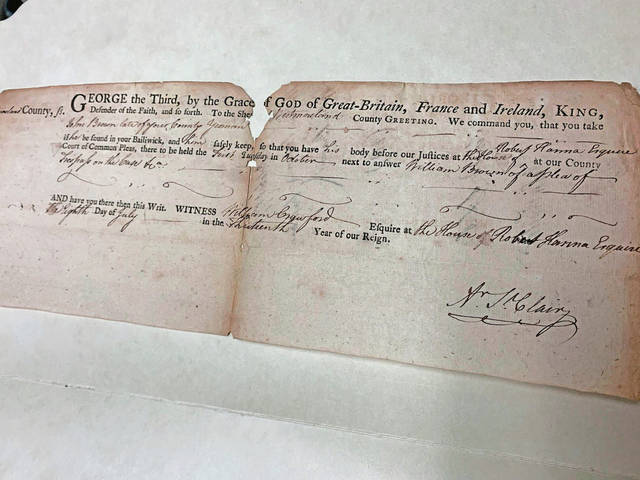 County, ss. GEORGE the Third, by the Grace of GOD of Great-Britain, France and Ireland, KING,
Defender of the Faith, and so forth. To the She Westmoreland County GREETING. We command you, that you take
John Brown late of your County Yeoman
if he be found in your Bailiwick, and him safely keep, so that you have his body before our Justices at the House of Robert Hanna Esquire at our County
Court of Common Pleas, there to be held the first Tuesday in October next to answer William Brown of a plea of
Trespass on the Case &c
AND have you there then this Writ. WITNESS William Crawford Esquire at the House of Robert Hanna Esquire
the Eighth Day of July in the Thirteenth Year of our Reign.
Ar. St. Clair